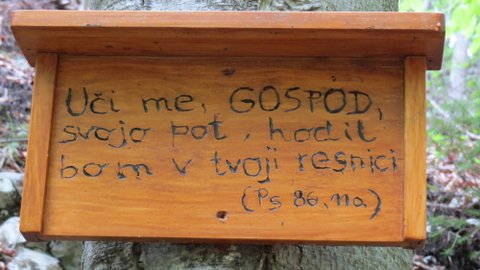 Uči me, GOSPÓD,
svojo pot, hodil
bom v tvoji resnici
(Ps 86,11a)